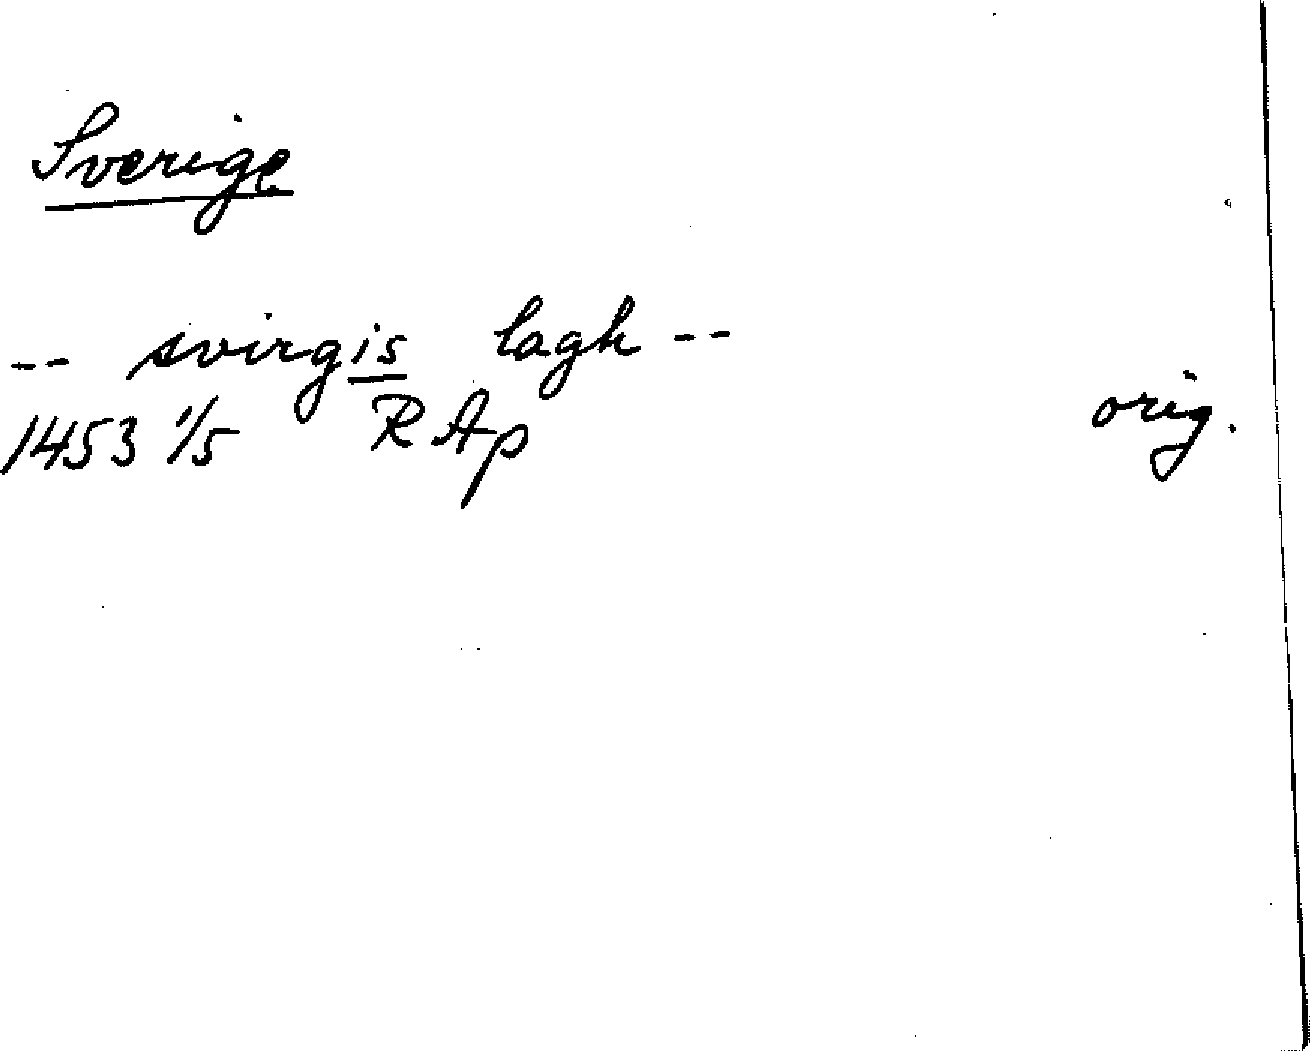 Sverige
-- svirgis lagh --
1453 1/5 RAp orig.